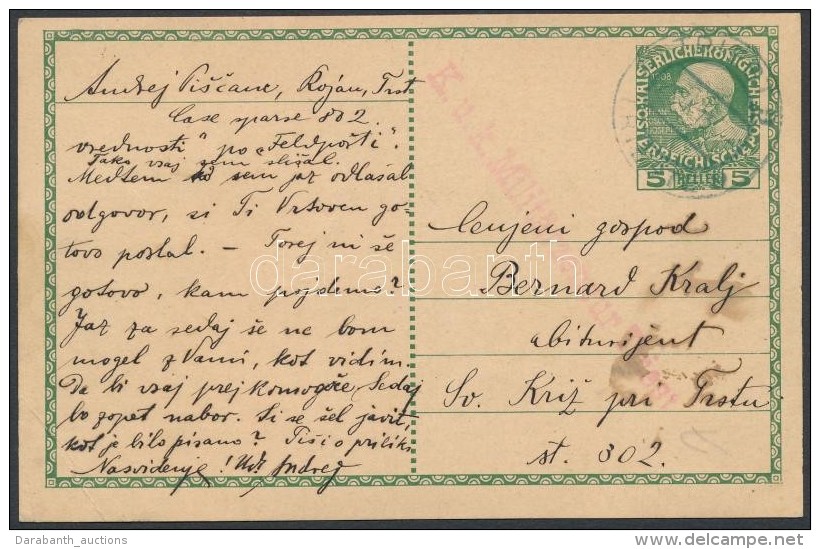 Andrej Piščanc, Rojan, Trst
802.
vrednosti" po "Feldpošti".
Tako vsaj sem slišal.
Medtem ko sem jaz odlašal
odgovor, si Ti Vrtoven go-
tovo poslal. – Torej ni še
gotovo, kam pojdemo?
Jaz za sedaj še ne bom
mogel z Vami, kot vidim.
Da bi vsaj prej komogoče, Sedaj
bo zopet nabor. Si se šel javit,
kot je bilo pisano? Piši o priliki,
Nasvidenje! Andrej
K. u. k.
1908
5 HELLER 5
Cenjeni gospod
Bernard Kralj
abiturijent
Sv. Križ pri Trstu
št. 302.
darabanth
Darabanth_auctions
delcampe.net